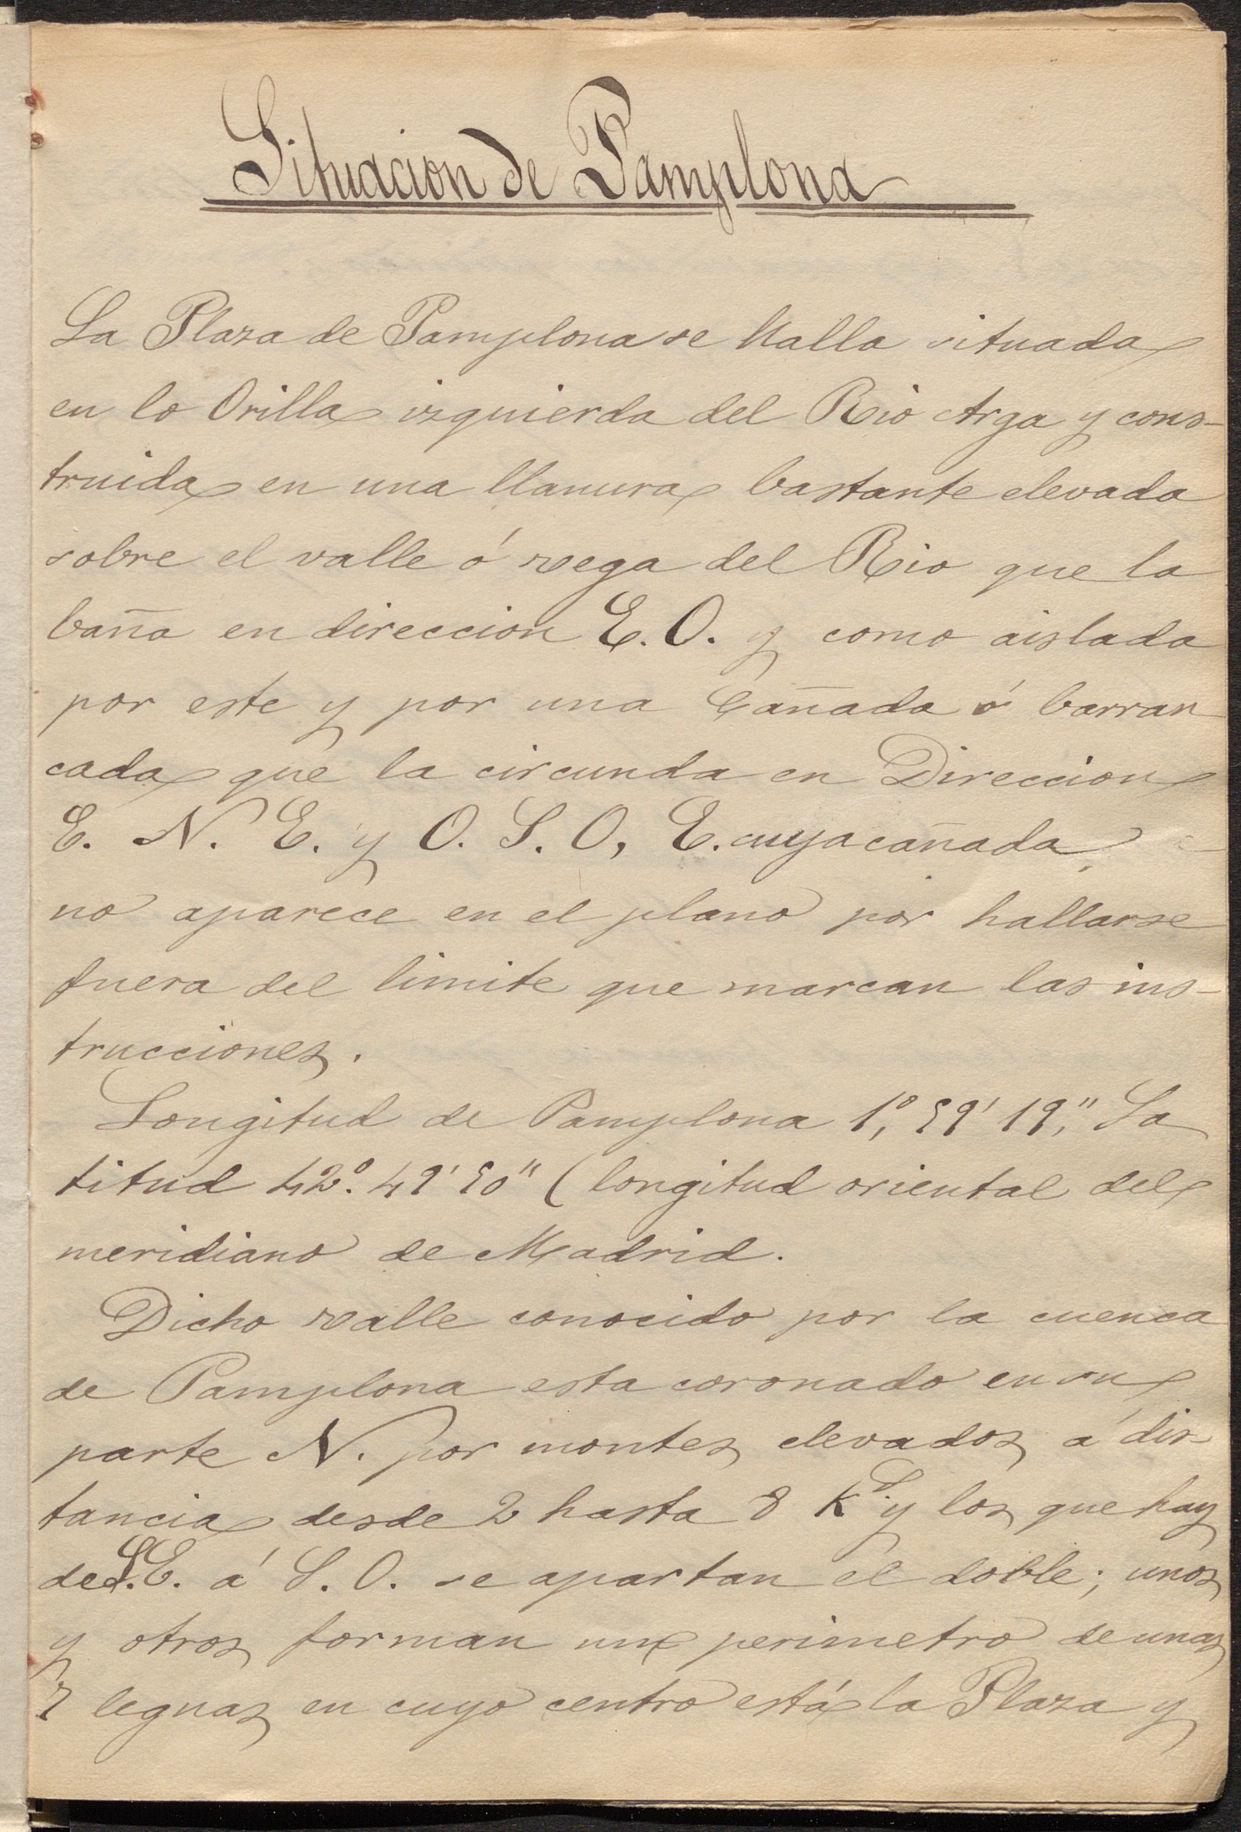 Situacion de Pamplona
La Plaza de Pamplona se halla situada
en la Orilla izquierda del Rio Arga y cons-
truida en una llanura bastante elevada
sobre el valle ó vega del Rio que la
baña en direccion E. O. y como aislada
por este y por una Cañada ó barran
cada que la circunda en Direccion
E. N. E. y O. S. O, E. cuya cañada
no aparece en el plano por hallarse
fuera del limite que marcan las ins-
trucciones.
Longitud de Pamplona 1º, 59' 19", La
titud 42º. 49' 50" (longitud oriental del
meridiano de Madrid.
Dicho valle conocido por la cuenca
de Pamplona esta coronado en su
parte N. por montes elevados á dis-
tancia desde 2 hasta 8 Ks. y los que hay
de S.E. á S. O. se apartan el doble; unos
y otros forman un perimetro de unas
leguas en cuyo centro está la Plaza y